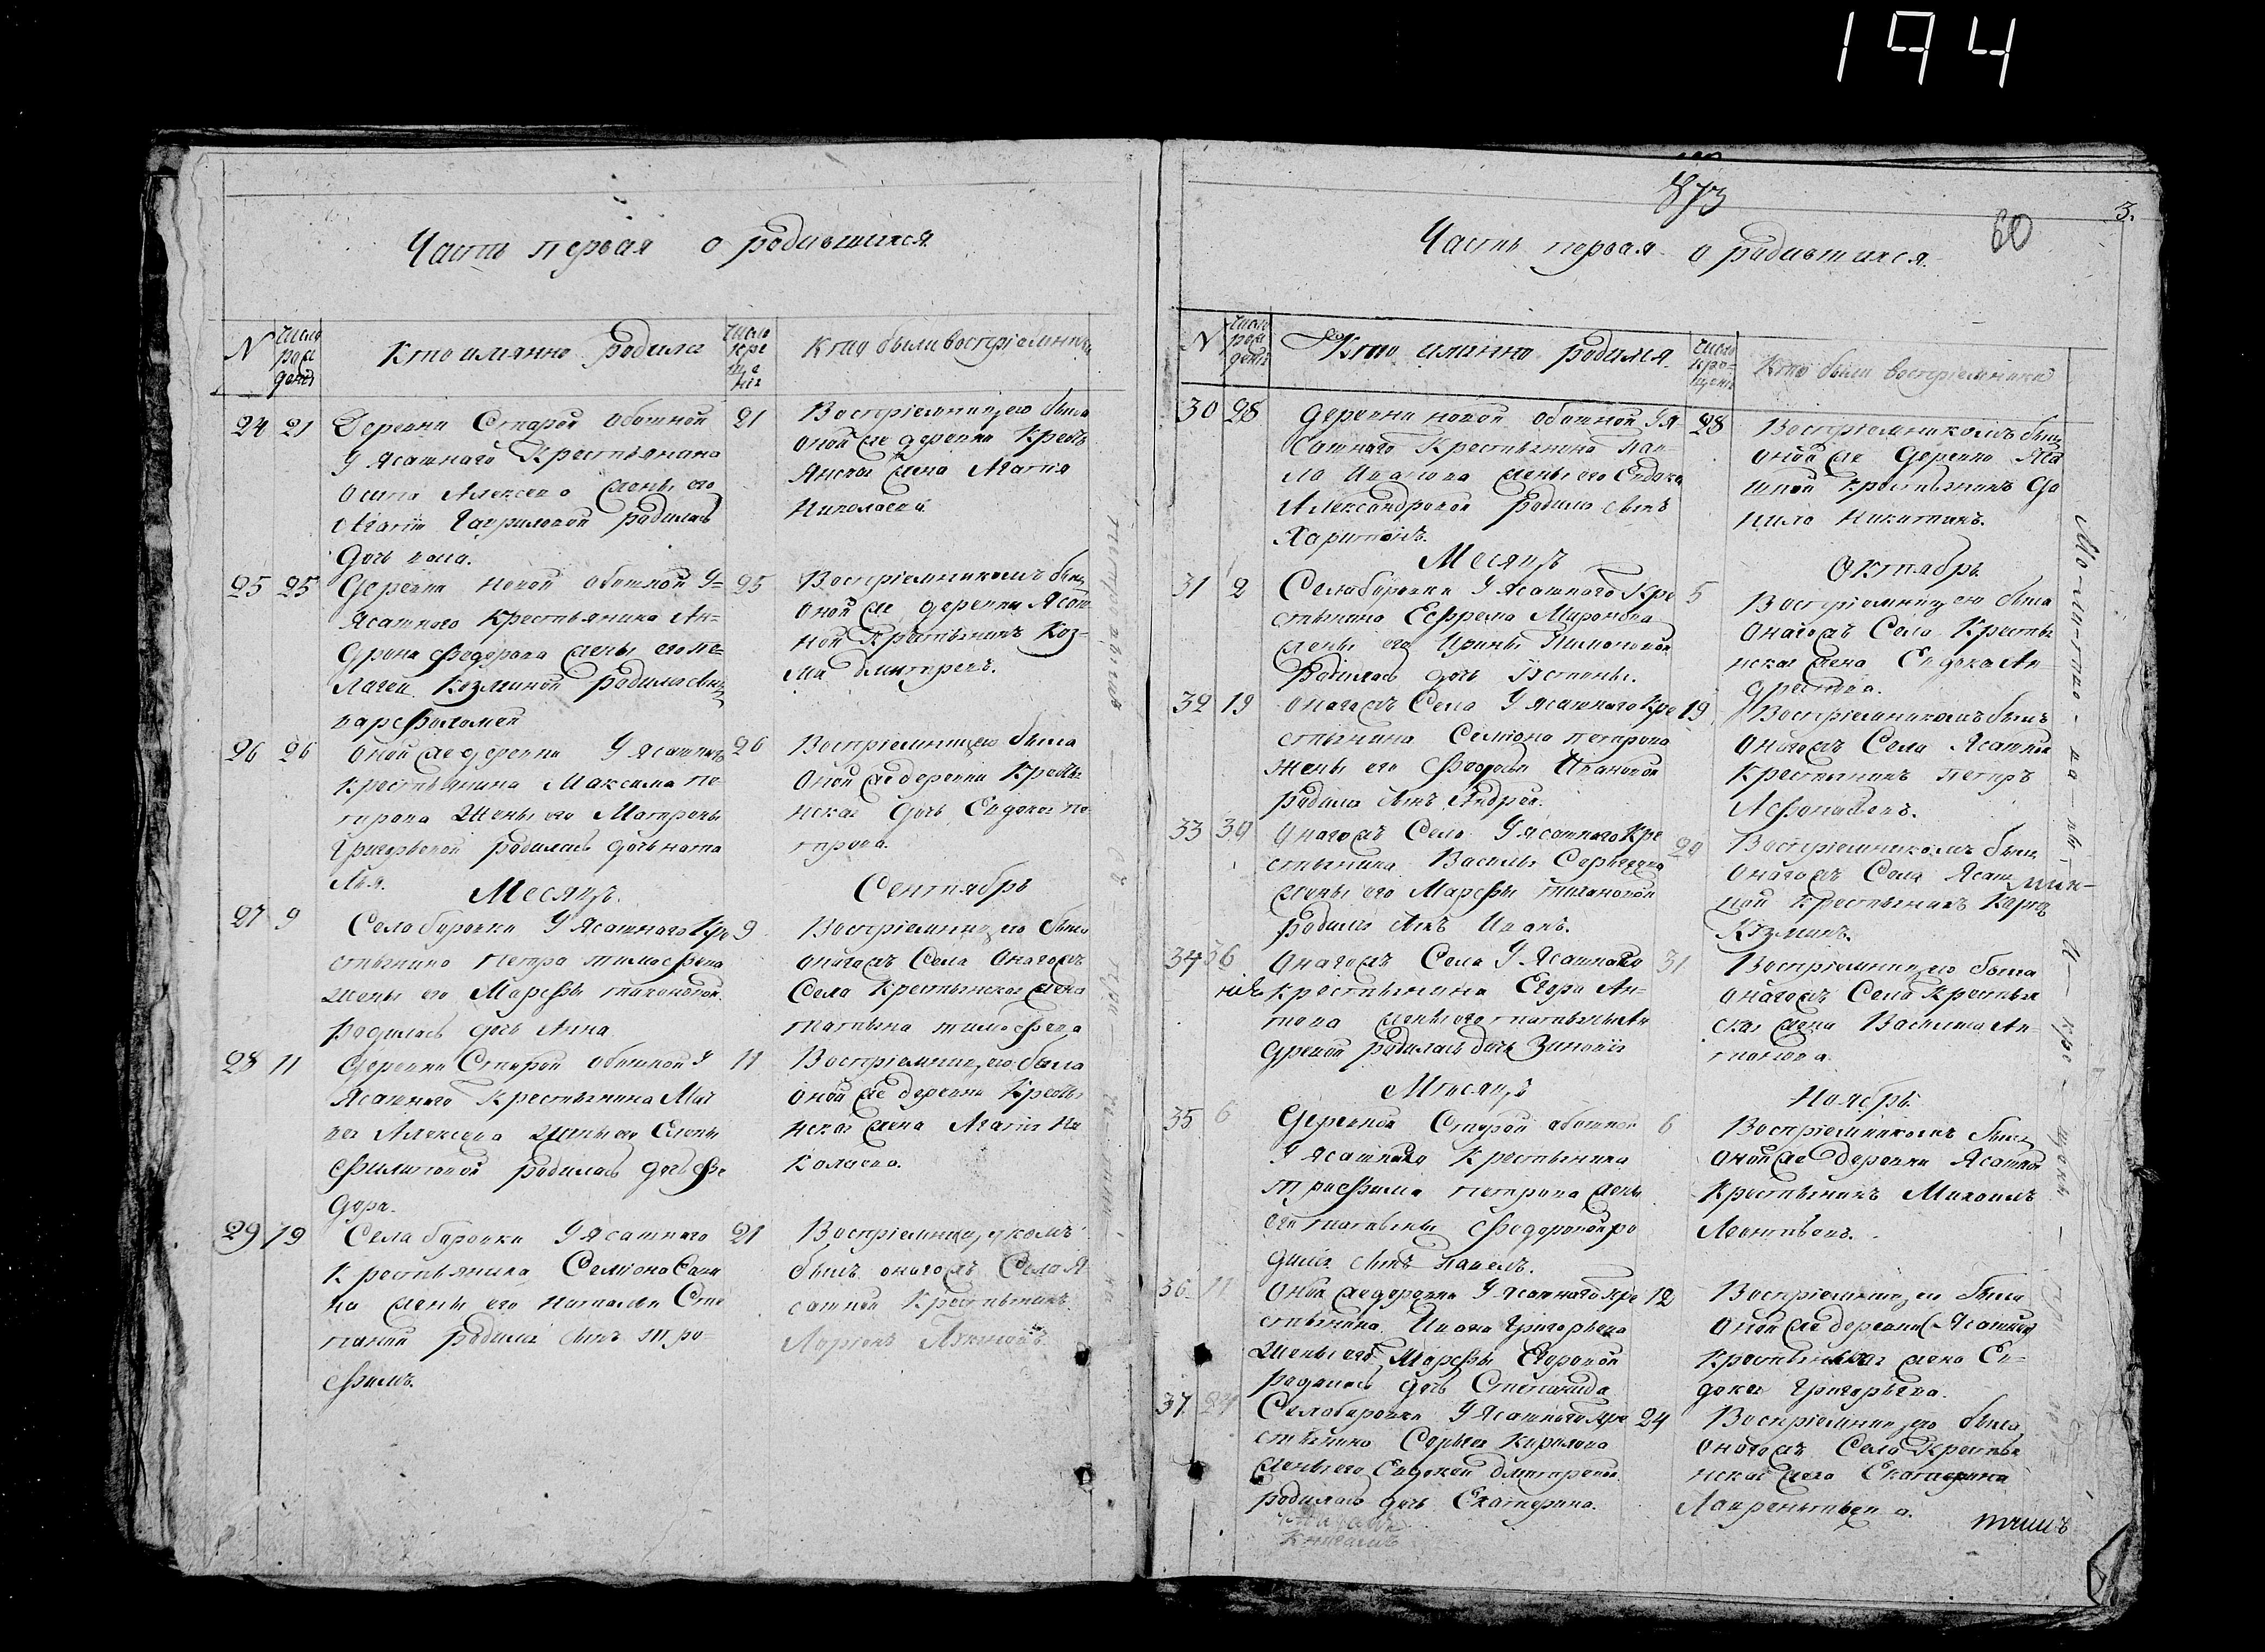 194
Часть первая о родившихся
N
Число рождения
Кто имянно родился
Число крещения
Кто были восприемники
24 21
Деревни Старой обошной
у Ясашного Крестьянина
Осипа Алексева жены его
Агафіи Гавриловой родилась
дочь
21
Восприемницею была
оной же деревни Кресть
янская жена Агафія
Николаева
25 25
Деревни новой обошной у
Ясашного Крестьянина Ан-
дреяна Федорова жены его Пе-
лагеи Козминой родился сынъ
варфоломей
25
Восприемникомъ былъ
оной же деревни Ясаш-
ной Крестьянинъ Коз-
ма Дмитревъ.
26 26
оной же деревни У Ясашнаго
крестьянина Максима Пе-
трова жены его Матрены
Григорьевой родилась дочь ната
лья.
26
Восприемницею была
оной же деревни Крестья
нская дочь Евдокея Пе
трова.
Месяцъ.
Сентябрь
27 9
Села боровки У Ясашного Кре
стьянина Петра тимофеева
жены его Марфы тихоновой
родилась дочь Анна
9
Восприемницею была
оногожъ Села оногожъ
Села Крестьянская жена
татьяна тимофеева
28 11
Деревни Старой обошной У
Ясашного Крестьянина Мат
вея Алексева жены его Елены
Филиповой родилась дочь Фе
дора.
11
Восприемницею была
оной же деревни Крестья
нская жена Агафія Ни
колаева.
29 19
Села боровки У Ясашного
Крестьянина Семіона Сави
на жены его наталіи Сте
пановой родился сынъ тро-
фимъ.
21
Восприемникомъ
былъ оногожъ Села Я
сашной Крестьянинъ
Ларіонъ
873
60
3.
Часть первая о родившихся
N
Число рождения
Кто имянно родился.
Число крещенія
Кто были восприемники
30 28
деревни новой обошной У Я
сашного Крестьянина Пав-
ла Иванова жены его Евдокеи
Александровой родился сынъ
Харитонъ.
28
Восприемникомъ былъ
оной же деревни Яса
шной крестьянинъ Да
нило Никитинъ.
Месяцъ
Октябрь
31 2
Села боровки У Ясашного Кре
стьянина Ефрема Миронова
жены его Ирины Тимоновой
Родилась дочь Устинья.
5
Восприемницею была
оногожъ Села Крестья
нская жена Евдокея Ан-
дреянова.
32 19
оногожъ Села У Ясашного Кре
стьянина Семіона петрова
жены его Федосьи Ивановой
родился сынъ Андрей.
19
Восприемникомъ былъ
оногожъ Села Ясашной
Крестьянинъ петръ
Афонасьевъ.
33 30
оногожъ Села У Ясашного Кре
стьянина Василья Сергеева
жены его Марфы тихоновой
родился сынъ Иванъ.
Восприемникомъ былъ
оногожъ Села Ясаш
ной Крестьянинъ
Козминъ.
34
оногожъ Села У Ясашного
крестьянина Егора Ан-
тона жены его татьяны Ан
древой родилась дочь Зиновія
31
Восприемницею была
оногожъ Села Крестьян
ская жена Василиса Ан-
тонова.
Месяцъ
Ноябрь
35 6
Деревни Старой обошной
У Ясашного Крестьянина
трофима петрова жены
его татьяны Федоровой ро
дился сынъ павелъ.
6
Восприемникомъ былъ
оной же деревни Ясашной
Крестьянинъ Михаилъ
Леонтьевъ.
36 11
оной же деревни У Ясашного кре
стьянина Ивана Григорьева
жены его Марфы Егоровой
родилась дочь Степанида
12
Восприемницею была
оной же деревни Ясашная
Крестьянская жена Ев-
докея Григорьева.
37 24
Села боровки У Ясашного кре
стьянина Сергея Кирилова
жены его Евдокеи Дмитревой
родилась дочь Екатерина.
24
Восприемницею была
оногожъ Села Крестья
нская жена Екатерина
Лаврентьева.